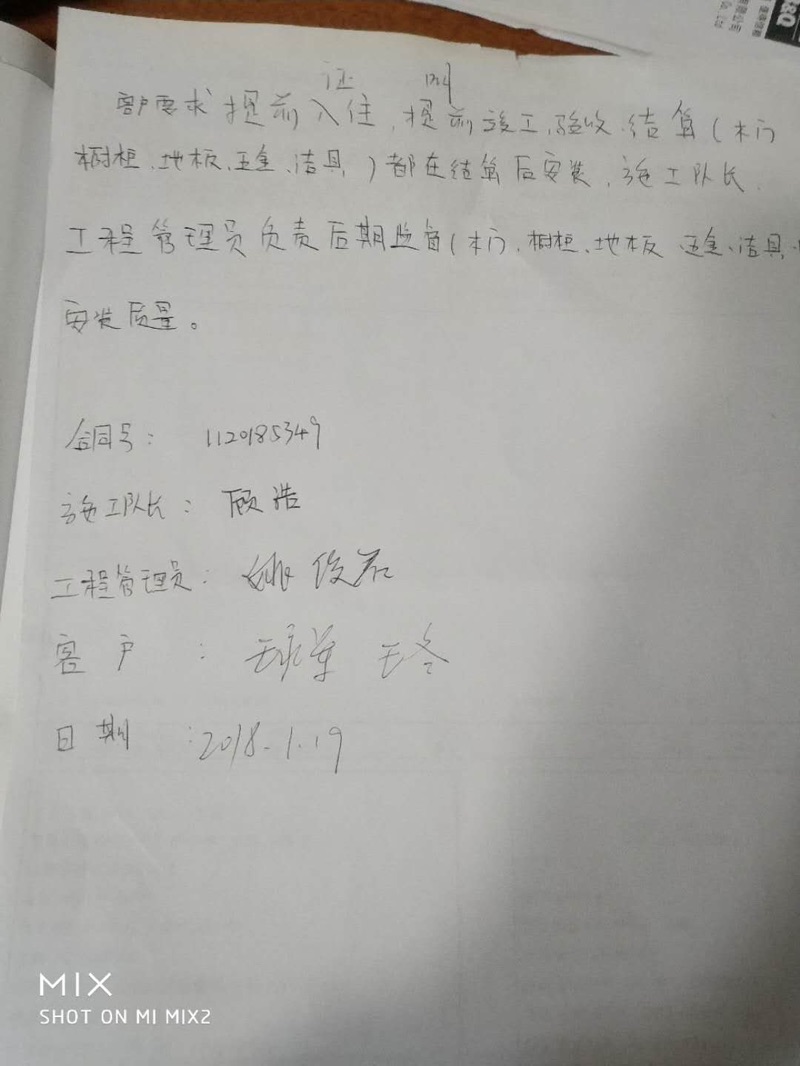 证 明
客户要求提前入住,提前竣工,验收.结算(木门
橱柜、地板、五金、洁具)都在结算后安装,施工队长、
工程管理员负责后期监督(木门、橱柜、地板 五金、洁具、
安装质量。
合同号: 1120185349
施工队长: 顾浩
工程管理员: 姚俊君
客 户 : 王冬
日 期 :2018.1.19
MIX
SHOT ON MI MIX2